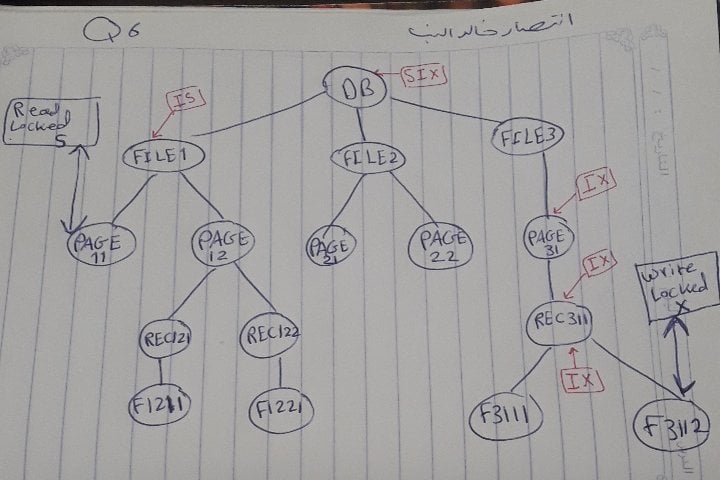 Q6
انتصار خالد البنا
DB
SIX
IS
Read
Locked
S
FILE1
FILE2
FILE3
IX
PAGE
11
PAGE
12
PAGE
21
PAGE
22
PAGE
31
IX
Write
Locked
X
REC121
REC122
REC311
IX
F1211
F1221
F3111
F3112